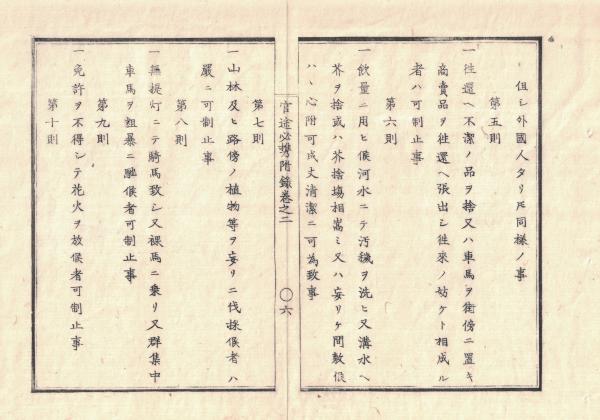 但シ外國人タリ𪜈同様ノ事
第五則
一往還ヘ不潔ノ品ヲ捨又ハ車馬ヲ街傍ニ置キ
商賣品ヲ往還ヘ張出シ徃來ノ妨ケト相成ル
者ハ可制止事
第六則
一飲量ニ用ヒ候河水ニテ汚穢ヲ洗ヒ又溝水ヘ
芥ヲ捨或ハ芥捨塲相嵩ミ又ハ妄リケ間敷候
ハヽ心附可成丈清潔ニ可為致事
官途必携附録巻之二
〇六
第七則
一山林及ヒ路傍ノ植物等ヲ妄リニ伐採候者ハ
嚴ニ可制止事
第八則
一無提灯ニテ騎馬致シ又裸馬ニ乗リ又群集中
車馬ヲ粗暴ニ馳候者可制止事
第九則
一免許ヲ不得シテ花火ヲ放候者可制止事
第十則